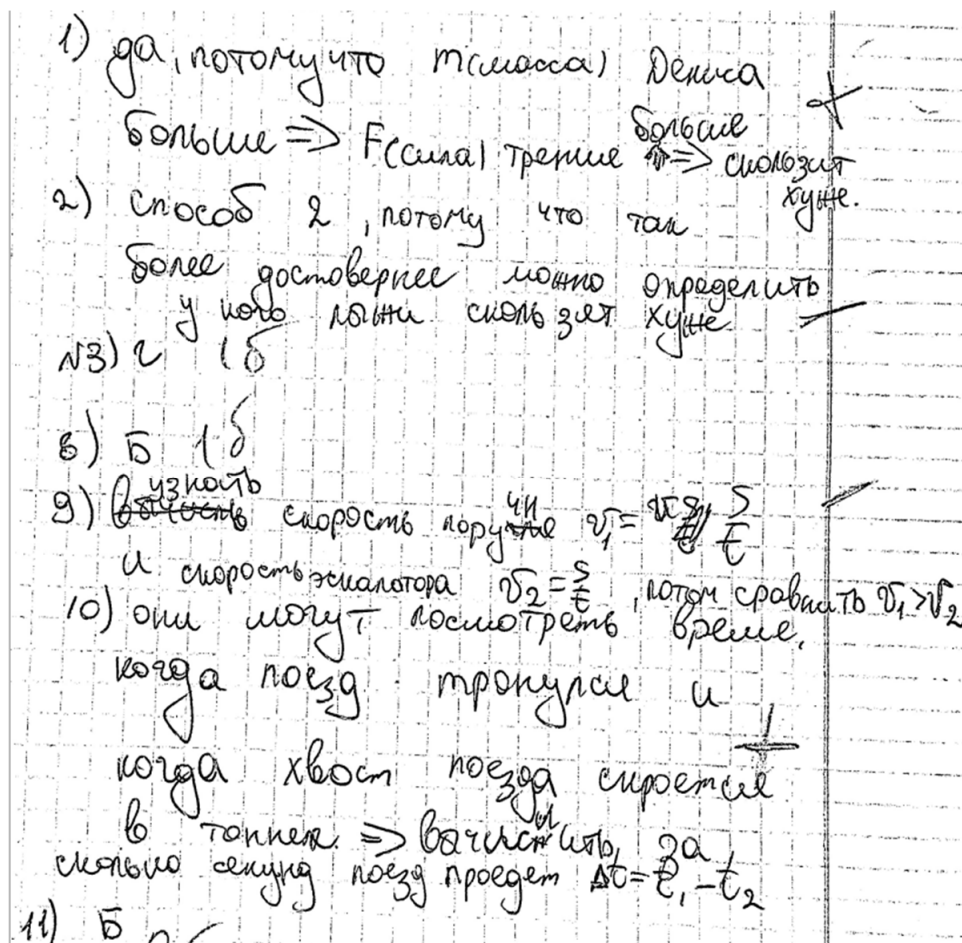 1) да, потому что m(масса) Дениса
больше => F(сила) трение больше => скользит
хуже.
2) способ 2, потому что так
более достовернее можно определить
у кого лыжи скользят хуже.
N3) г 1б
8) Б 1б
9) узнать скорость поручня v₁ = S/t
и скорость эскалатора v₂ = S/t, потом сравнить v₁ > v₂
10) они могут посмотреть время,
когда поезд тронулся и
когда хвост поезда скроется
в тоннел => вычислить, за
сколько секунд поезд проедет Δt = t₁ - t₂
11) Б